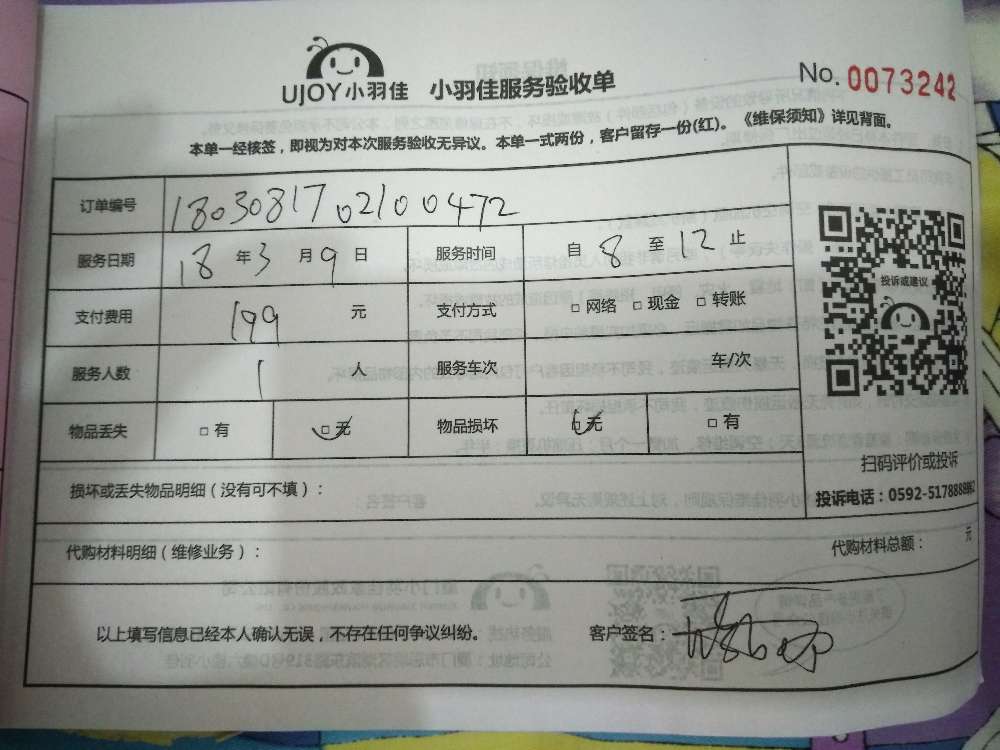 UJOY小羽佳 小羽佳服务验收单 No. 0073242
本单一经核签，即视为对本次服务验收无异议。本单一式两份，客户留存一份(红)。《维保须知》详见背面。
订单编号 1803081702100472
服务日期 18 年 3 月 9 日 服务时间 自 8 至 12 止
支付费用 199 元 支付方式 □ 网络 □ 现金 □ 转账
服务人数 1 人 服务车次 车/次
物品丢失 □ 有 □ 无 物品损坏 □ 无 □ 有
投诉或建议
扫码评价或投诉
投诉电话：0592-5178888
损坏或丢失物品明细（没有可不填）：
代购材料明细（维修业务）： 代购材料总额： 元
以上填写信息已经本人确认无误，不存在任何争议纠纷。 客户签名：